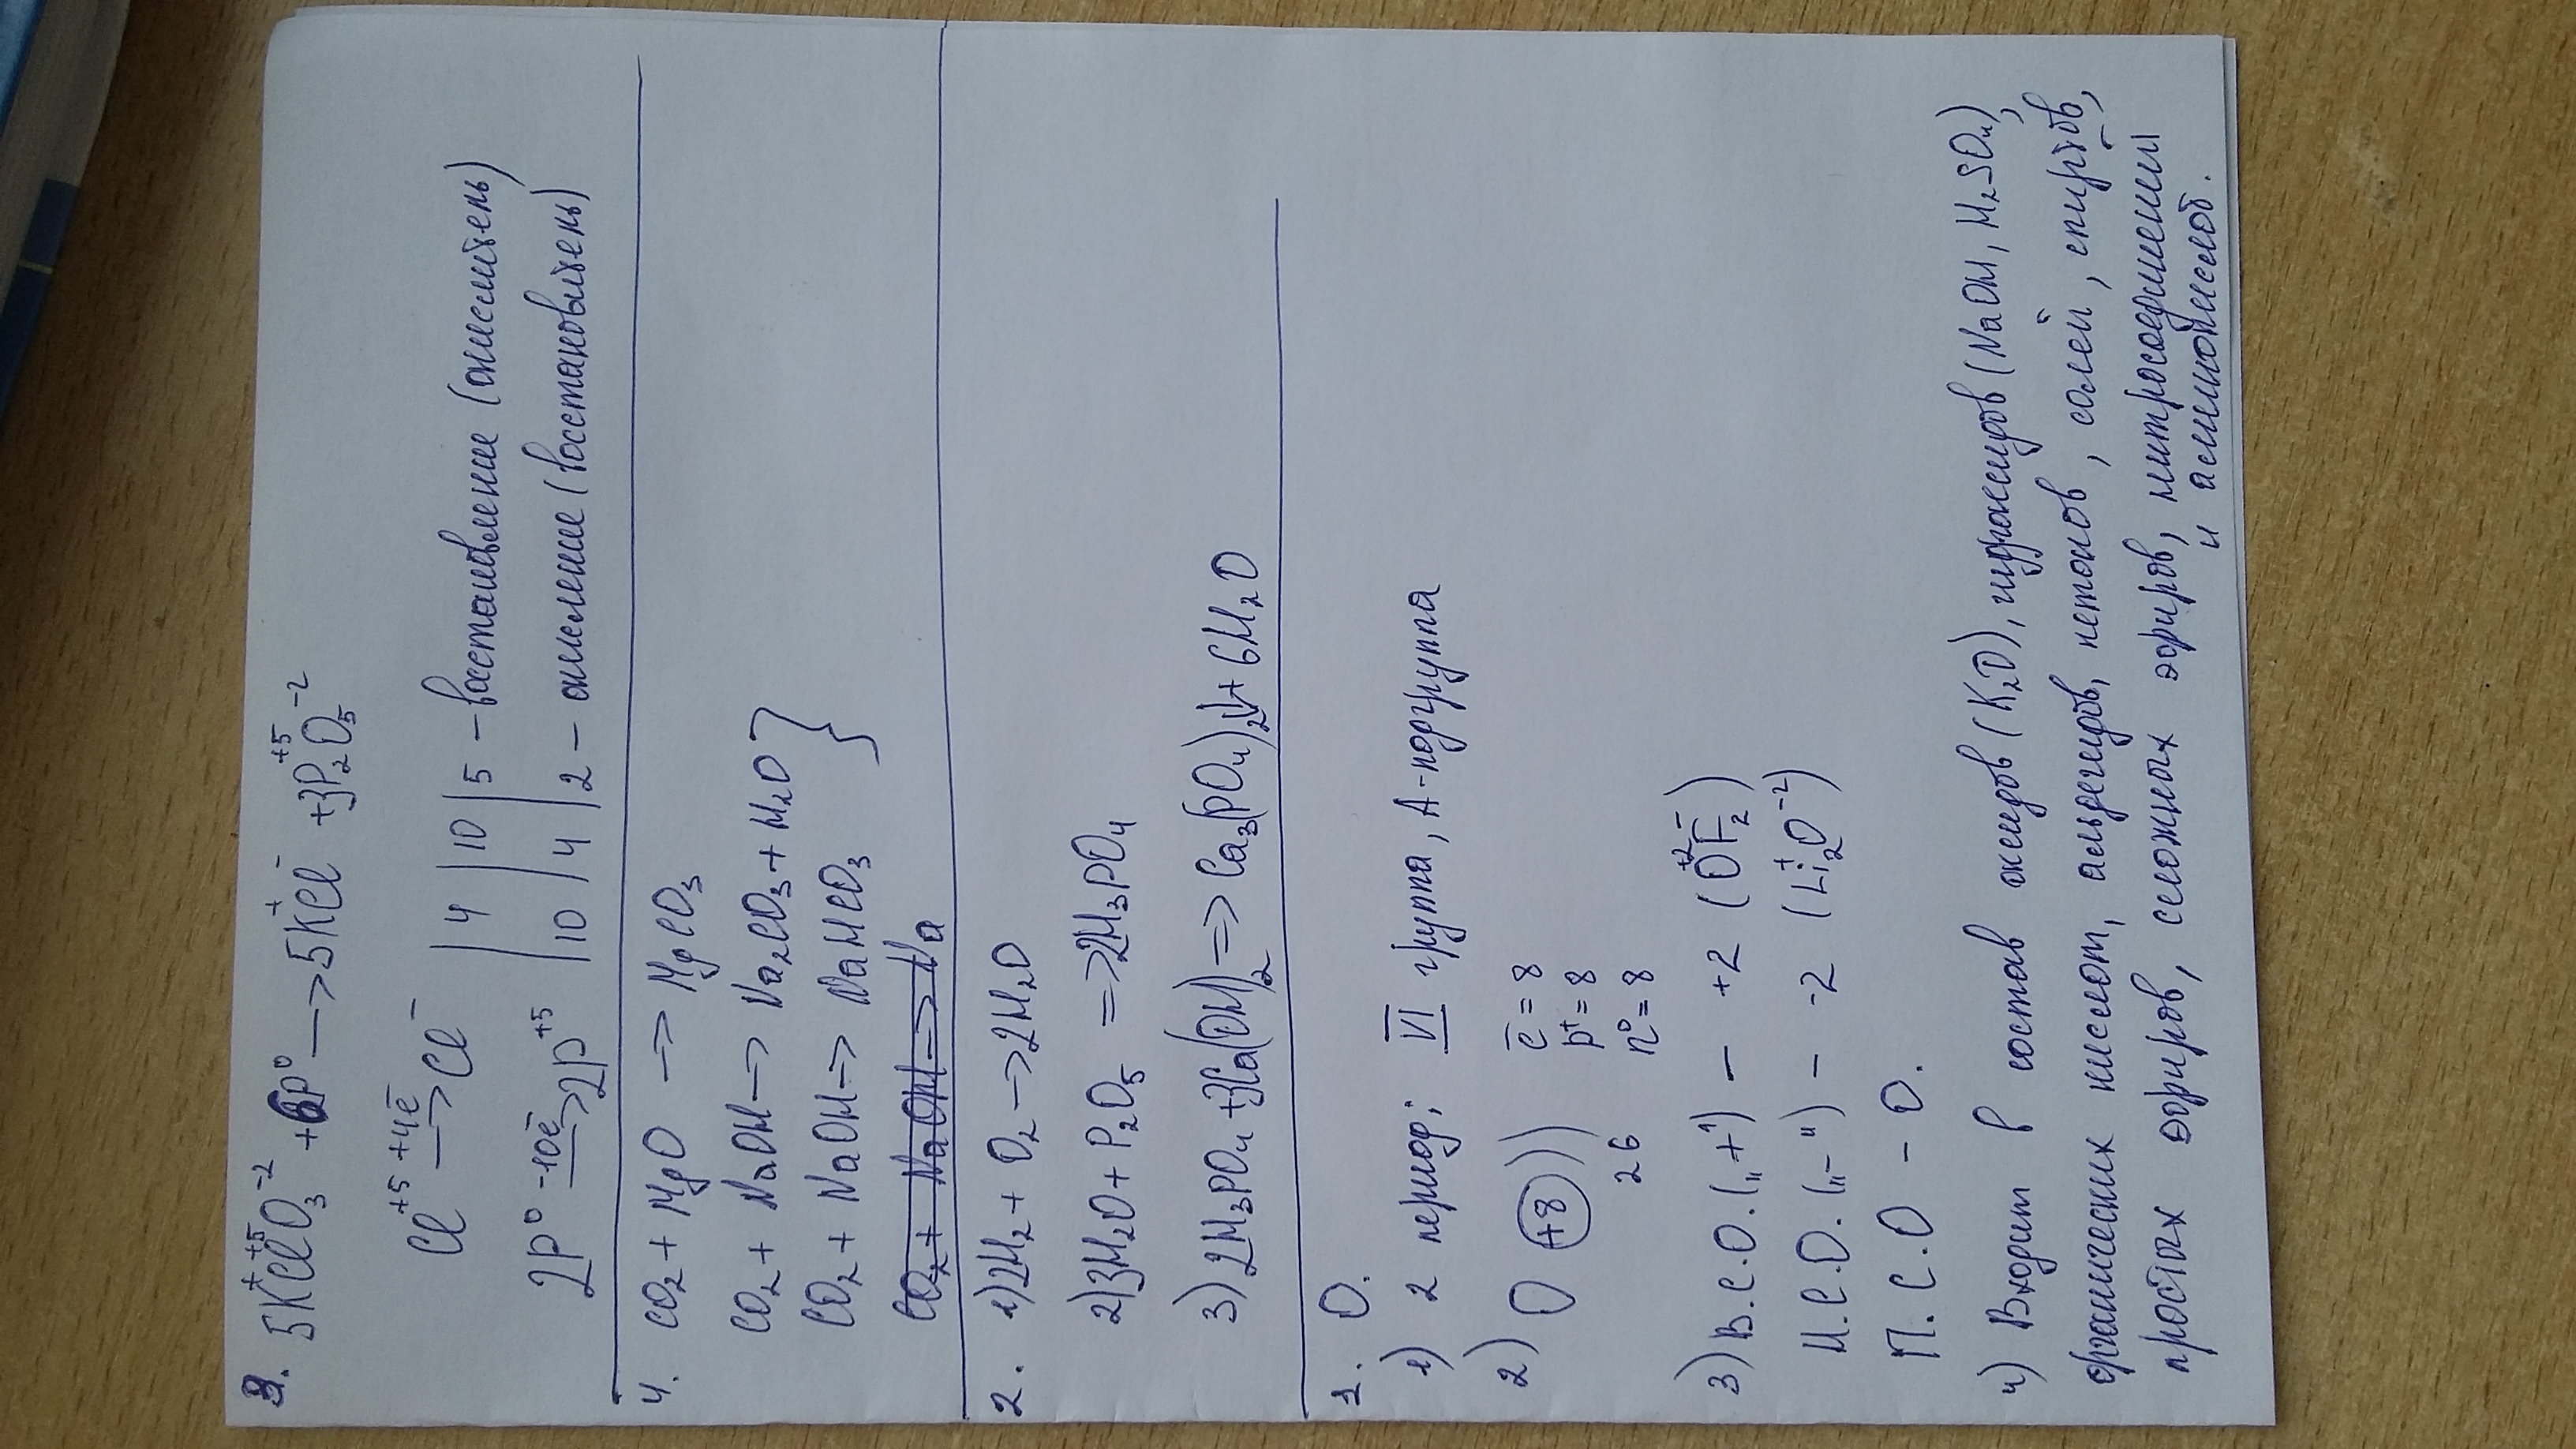 3. 5K⁺Cl⁺⁵O₃⁻² + 6P⁰ —> 5K⁺Cl⁻ + 3P₂⁺⁵O₅⁻²
Cl⁺⁵ +4ē —> Cl⁻ | 4 | 10 | 5 – восстановление (окислитель)
2P⁰ -10ē —> 2P⁺⁵ | 10 | 4 | 2 – окисление (восстановитель)
4. CO₂ + MgO —> MgCO₃
CO₂ + NaOH —> Na₂CO₃ + H₂O }
CO₂ + NaOH —> NaHCO₃
CO₂ + NaOH —> Na
2. 1) 2H₂ + O₂ —> 2H₂O
2) 3H₂O + P₂O₅ => 2H₃PO₄
3) 2H₃PO₄ + 3Ca(OH)₂ => Ca₃(PO₄)₂↓ + 6H₂O
1. O.
1) 2 период; VI группа, А-подгруппа
2) O (+8) ) ) ē = 8
p⁺ = 8
2 6 n⁰ = 8
3) В.С.О. („+") — +2 (O⁺²F₂⁻)
Н.С.О. („–") — -2 (Li₂⁺O⁻²)
П.С.О – O.
4) Входит в состав оксидов (K₂O), гидроксидов (NaOH, H₂SO₄),
органических кислот, альдегидов, кетонов, солей, спиртов,
простых эфиров, сложных эфиров, нитросоединений
и аминокислот.